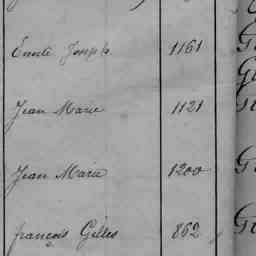 Emile Joseph 1161
Jean Marie 1121
Jean Marie 1200
françois Gilles 862